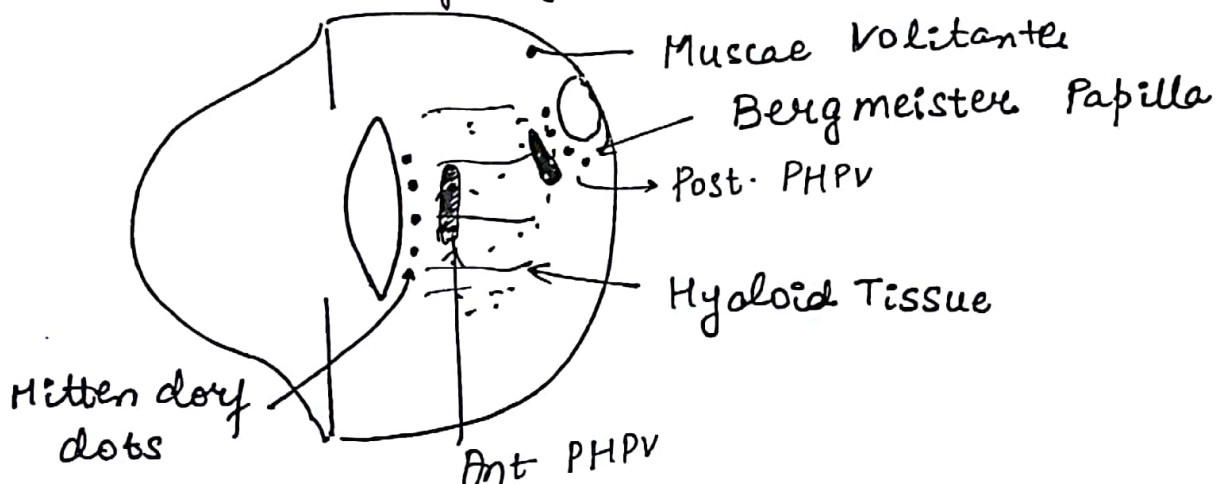 Muscae Volitantes
Bergmeister Papilla
Post. PHPV
Hyaloid Tissue
Mittendorf
dots
Ant PHPV